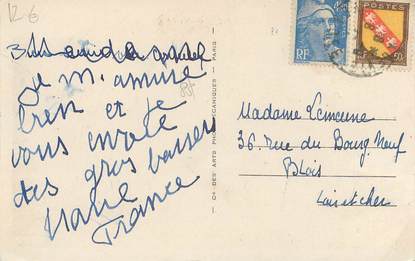 R6
Je m'amuse
bien et je
vous envoie
des gros baisers
France
Cie DES ARTS PHOTOMÉCANIQUES - PARIS
POSTES
RF
Madame Lemeune
36, rue du Bourg Neuf
Blois
Loir et cher